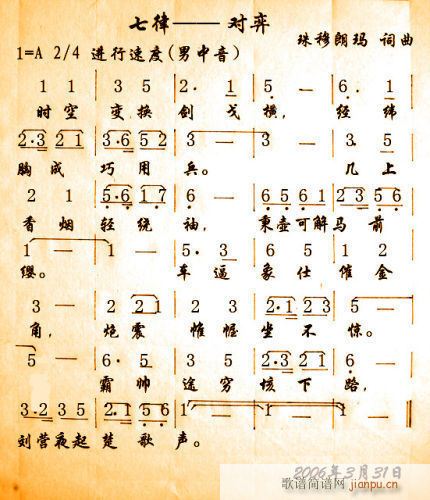 七律——对弈
珠穆朗玛 词曲
1=A 2/4 进行速度(男中音)
1 1 | 3 5 | 2· 1 | 5 — | 6· 1 |
时空 变换 剑戈 横, 经纬
2·3 2 1 | 3·6 5 2 | 3 — | 3 — | 3 5 |
胸成 巧用 兵。 几上
2 1 | 5·6 1 7 | 6 — | 6 5 6 1 | 2 3 5 6 |
香烟 轻绕 袖, 束壶可解马前
1 — | 1 — | 5· 3 | 6 5 | 1 2 |
缨。 车逼 象仕 催金
3 — | 2 2 1 | 2 3 | 2·1 2 3 | 5 — |
角, 炮震 帷幄 坐不 惊。
5 — | 6· 5 | 3 5 | 2·3 2 1 | 6 — |
霸帅 途穷 垓下 路,
3·2 3 5 | 2·1 5 6 | 1 — | 1 — | 1 — |
刘营夜起 楚歌 声。
2006年3月31日
歌谱简谱网
jianpu.cn